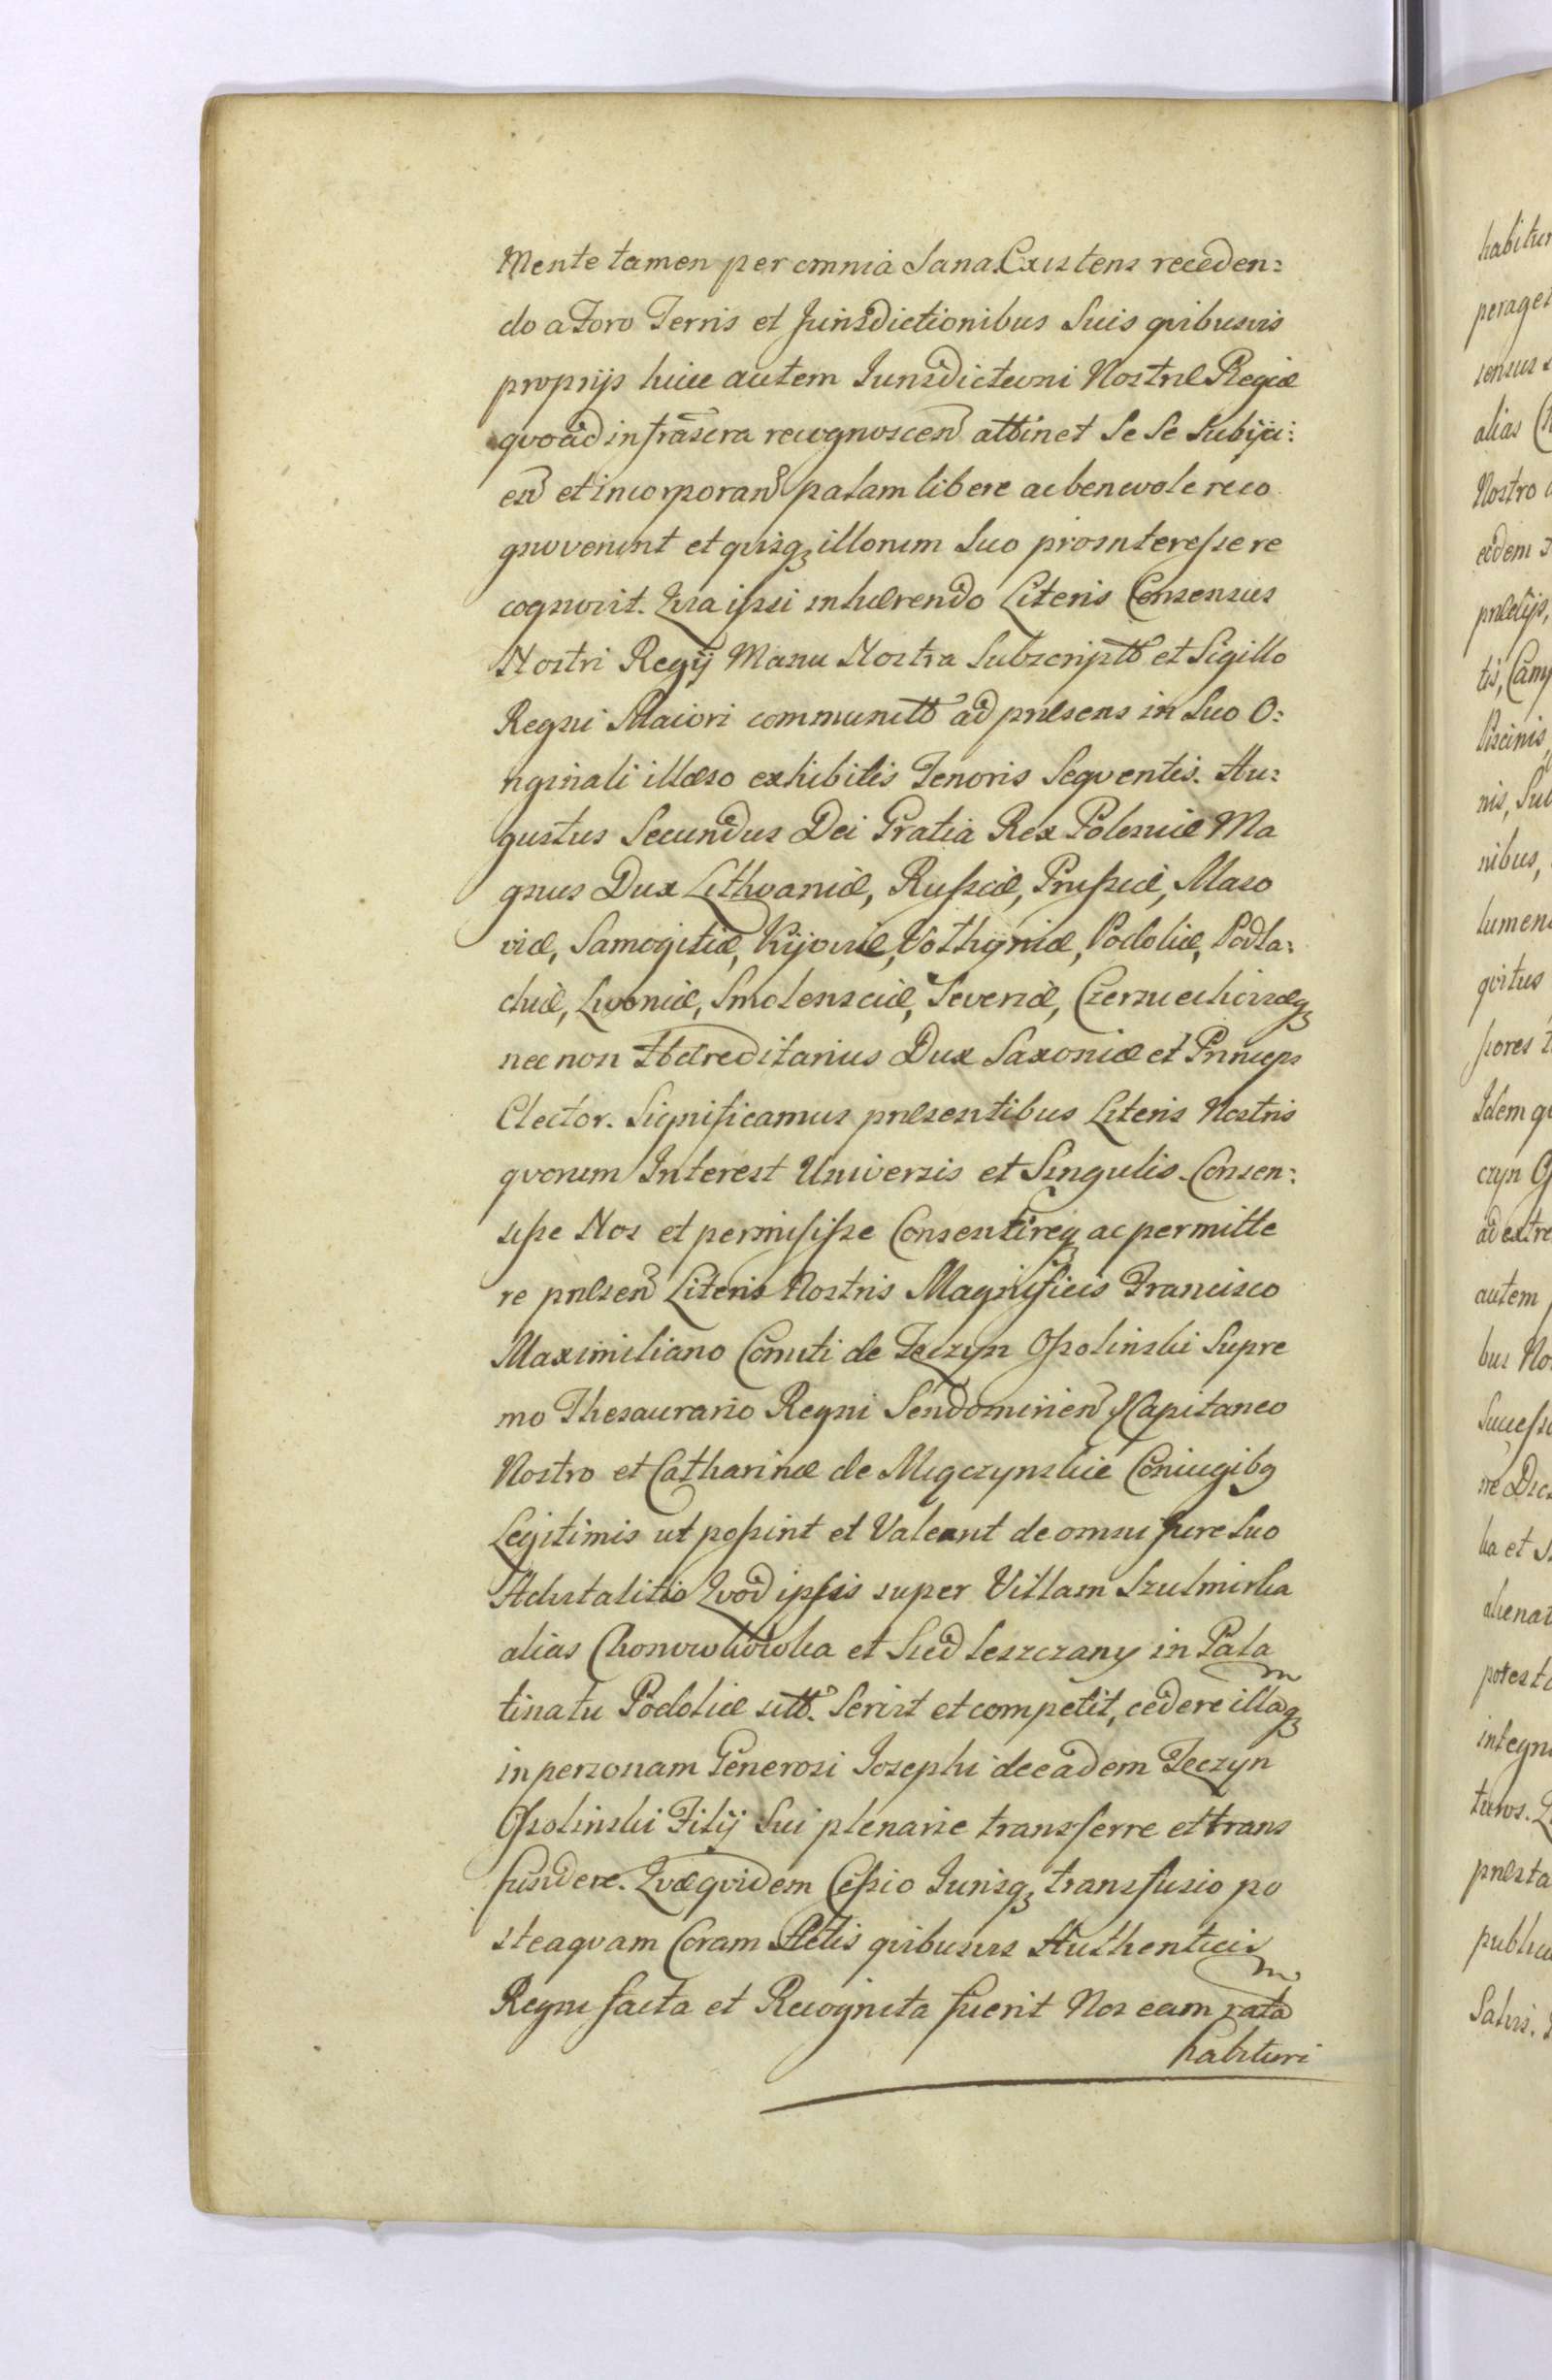 Mente tamen per omnia Sana Existens receden:
do a Foro Terris et Jurisdictionibus Suis qvibusvis
proprijs huic autem Jurisdictioni Nostræ Regiæ
qvoad infrascra recognoscen attinet Se Se Subijci:
en et incorporan palam libere ac benevole reco
gnoverunt et qvisq illorum Suo pro interesse re
cognovit. Qvia ipsi inhærendo Literis Consensus
Nostri Regij Manu Nostra Subscriptt et Sigillo
Regni Maiori communitt ad præsens in Suo O:
riginali illæso exhibitis Tenoris Seqventis. Au:
gustus Secundus Dei Gratia Rex Poloniæ Ma
gnus Dux Lithvaniæ, Russiæ, Prussiæ, Maso
viæ, Samogitiæ, Kijoviæ, Volhyniæ, Podoliæ, Podla:
chiæ, Livoniæ, Smolensciæ, Severiæ, Czerniechoviæq
nec non Hæreditarius Dux Saxoniæ et Princeps
Elector. Significamus præsentibus Literis Nostris
qvorum Interest Universis et Singulis. Consen:
sisse Nos et permisisse Consentireq ac permitte
re præsen Literis Nostris Magnificis Francisco
Maximiliano Comiti de Teczyn Ossolinski Supre
mo Thesaurario Regni Sendomirien Capitaneo
Nostro et Catharinæ de Miączynskie Coniugibg
Legitimis ut possint et Valeant de omni jure Suo
Advitalitio Qvod ipsis super Villam Szulmirka
alias Chonowkowka et Siedleszczany in Pala
tinatu Podoliæ sitt. Servit et competit, cedere illaq
in personam Generosi Josephi de eadem Teczyn
Ossolinski Filij Sui plenarie transferre et trans
fundere. Qvæqvidem Cessio Jurisq transfusio po
steaqvam Coram Actis qvibusvis Authenticis
Regni facta et Recognita fuerit Nos eam rata
habituri